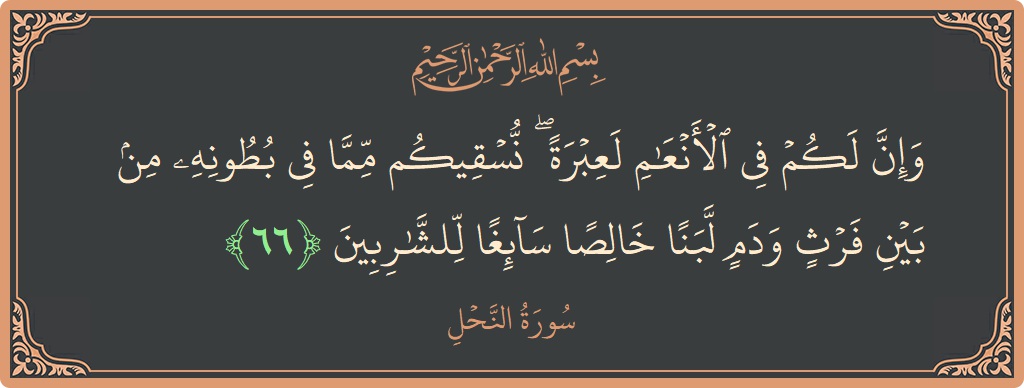 بِسْمِ اللَّهِ الرَّحْمَٰنِ الرَّحِيمِ
وَإِنَّ لَكُمْ فِي ٱلْأَنْعَٰمِ لَعِبْرَةً ۖ نُّسْقِيكُم مِّمَّا فِي بُطُونِهِۦ مِنۢ
بَيْنِ فَرْثٍ وَدَمٍ لَّبَنًا خَالِصًا سَآئِغًا لِّلشَّٰرِبِينَ ﴿٦٦﴾
سُورَةُ النَّحْلِ